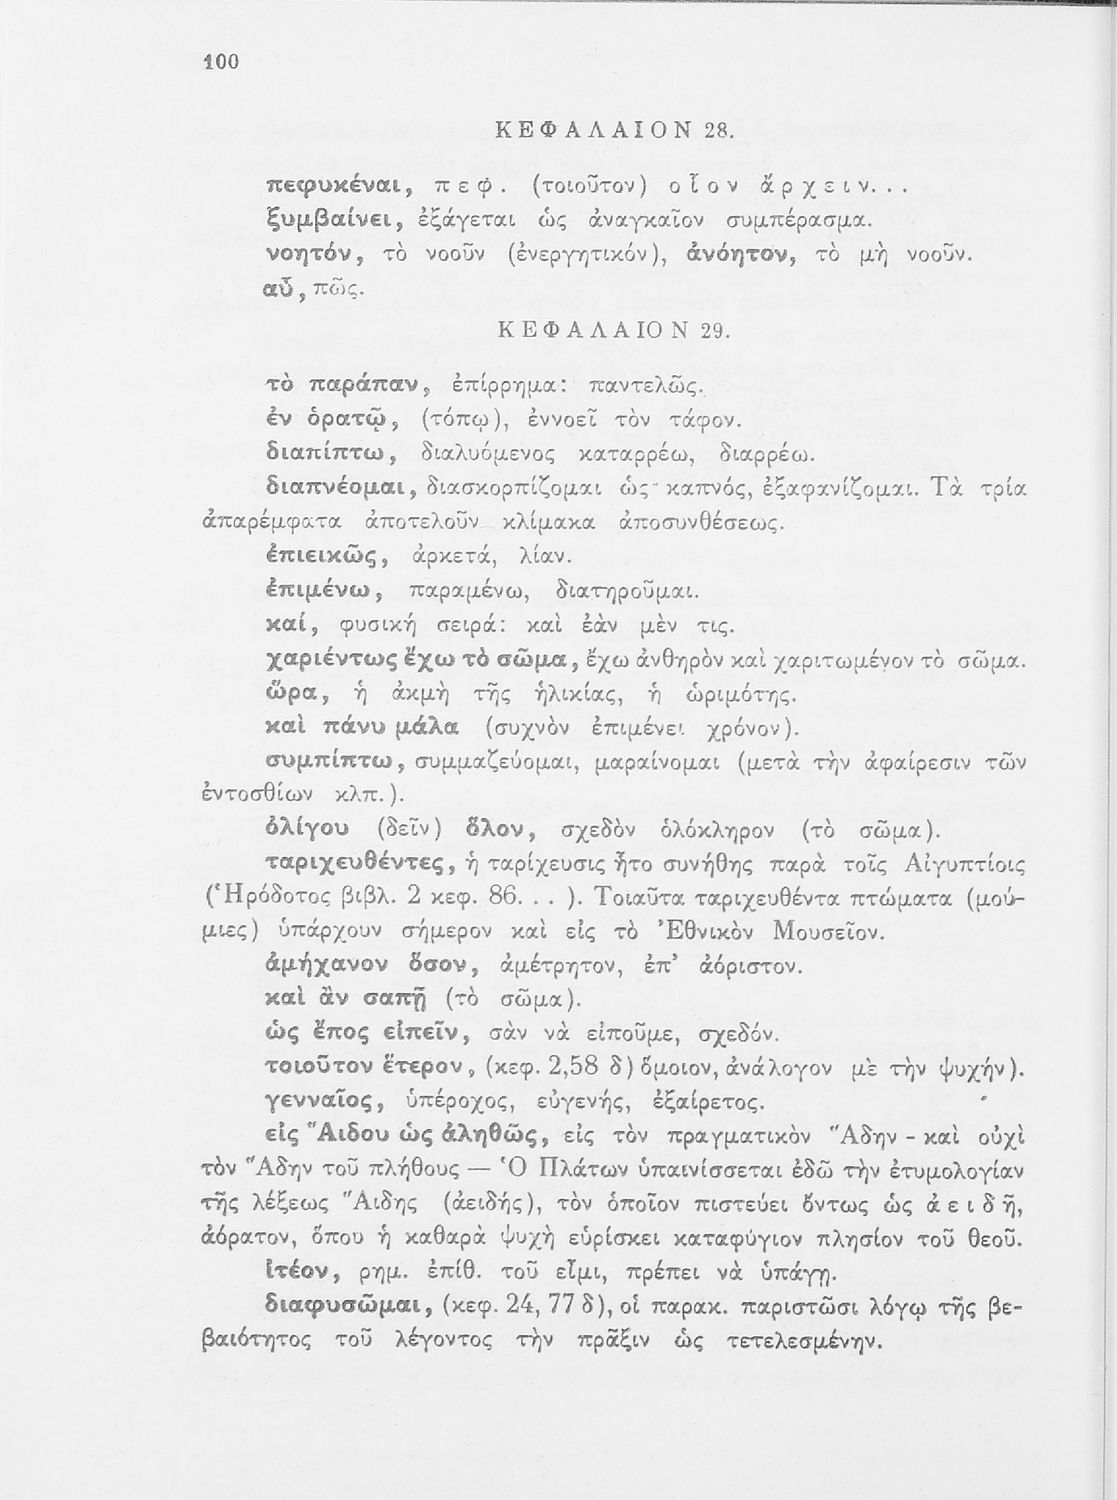 100
ΚΕΦΑΛΑΙΟΝ 28.
πεφυκέναι, πεφ. (τοιοῦτον) οἷον ἄρχειν...
ξυμβαίνει, ἐξάγεται ὡς ἀναγκαῖον συμπέρασμα.
νοητόν, τὸ νοοῦν (ἐνεργητικόν), ἀνόητον, τὸ μὴ νοοῦν.
αὖ, πῶς.
ΚΕΦΑΛΑΙΟΝ 29.
τὸ παράπαν, ἐπίρρημα: παντελῶς.
ἐν ὁρατῷ, (τόπῳ), ἐννοεῖ τὸν τάφον.
διαπίπτω, διαλυόμενος καταρρέω, διαρρέω.
διαπνέομαι, διασκορπίζομαι ὡς καπνός, ἐξαφανίζομαι. Τὰ τρία
ἀπαρέμφατα ἀποτελοῦν κλίμακα ἀποσυνθέσεως.
ἐπιεικῶς, ἀρκετά, λίαν.
ἐπιμένω, παραμένω, διατηροῦμαι.
καί, φυσικὴ σειρά: καὶ ἐὰν μὲν τις.
χαριέντως ἔχω τὸ σῶμα, ἔχω ἀνθηρὸν καὶ χαριτωμένον τὸ σῶμα.
ὥρα, ἡ ἀκμὴ τῆς ἡλικίας, ἡ ὡριμότης.
καὶ πάνυ μάλα (συχνὸν ἐπιμένει χρόνον).
συμπίπτω, συμμαζεύομαι, μαραίνομαι (μετὰ τὴν ἀφαίρεσιν τῶν
ἐντοσθίων κλπ.).
ὀλίγου (δεῖν) ὅλον, σχεδὸν ὁλόκληρον (τὸ σῶμα).
ταριχευθέντες, ἡ ταρίχευσις ἦτο συνήθης παρὰ τοῖς Αἰγυπτίοις
(Ἡρόδοτος βιβλ. 2 κεφ. 86. . . ). Τοιαῦτα ταριχευθέντα πτώματα (μού-
μιες) ὑπάρχουν σήμερον καὶ εἰς τὸ Ἐθνικὸν Μουσεῖον.
ἀμήχανον ὅσον, ἀμέτρητον, ἐπ' ἀόριστον.
καὶ ἂν σαπῇ (τὸ σῶμα).
ὡς ἔπος εἰπεῖν, σὰν νὰ εἰποῦμε, σχεδόν.
τοιοῦτον ἕτερον, (κεφ. 2,58 δ) ὅμοιον, ἀνάλογον μὲ τὴν ψυχήν).
γενναῖος, ὑπέροχος, εὐγενής, ἐξαίρετος.
εἰς Ἅιδου ὡς ἀληθῶς, εἰς τὸν πραγματικὸν Ἅδην - καὶ οὐχὶ
τὸν Ἅδην τοῦ πλήθους — Ὁ Πλάτων ὑπαινίσσεται ἐδῶ τὴν ἐτυμολογίαν
τῆς λέξεως Ἅιδης (ἀειδής), τὸν ὁποῖον πιστεύει ὄντως ὡς ἀειδῆ,
ἀόρατον, ὅπου ἡ καθαρὰ ψυχὴ εὑρίσκει καταφύγιον πλησίον τοῦ θεοῦ.
ἰτέον, ρημ. ἐπίθ. τοῦ εἶμι, πρέπει νὰ ὑπάγῃ.
διαφυσῶμαι, (κεφ. 24, 77 δ), οἱ παρακ. παριστῶσι λόγῳ τῆς βε-
βαιότητος τοῦ λέγοντος τὴν πρᾶξιν ὡς τετελεσμένην.